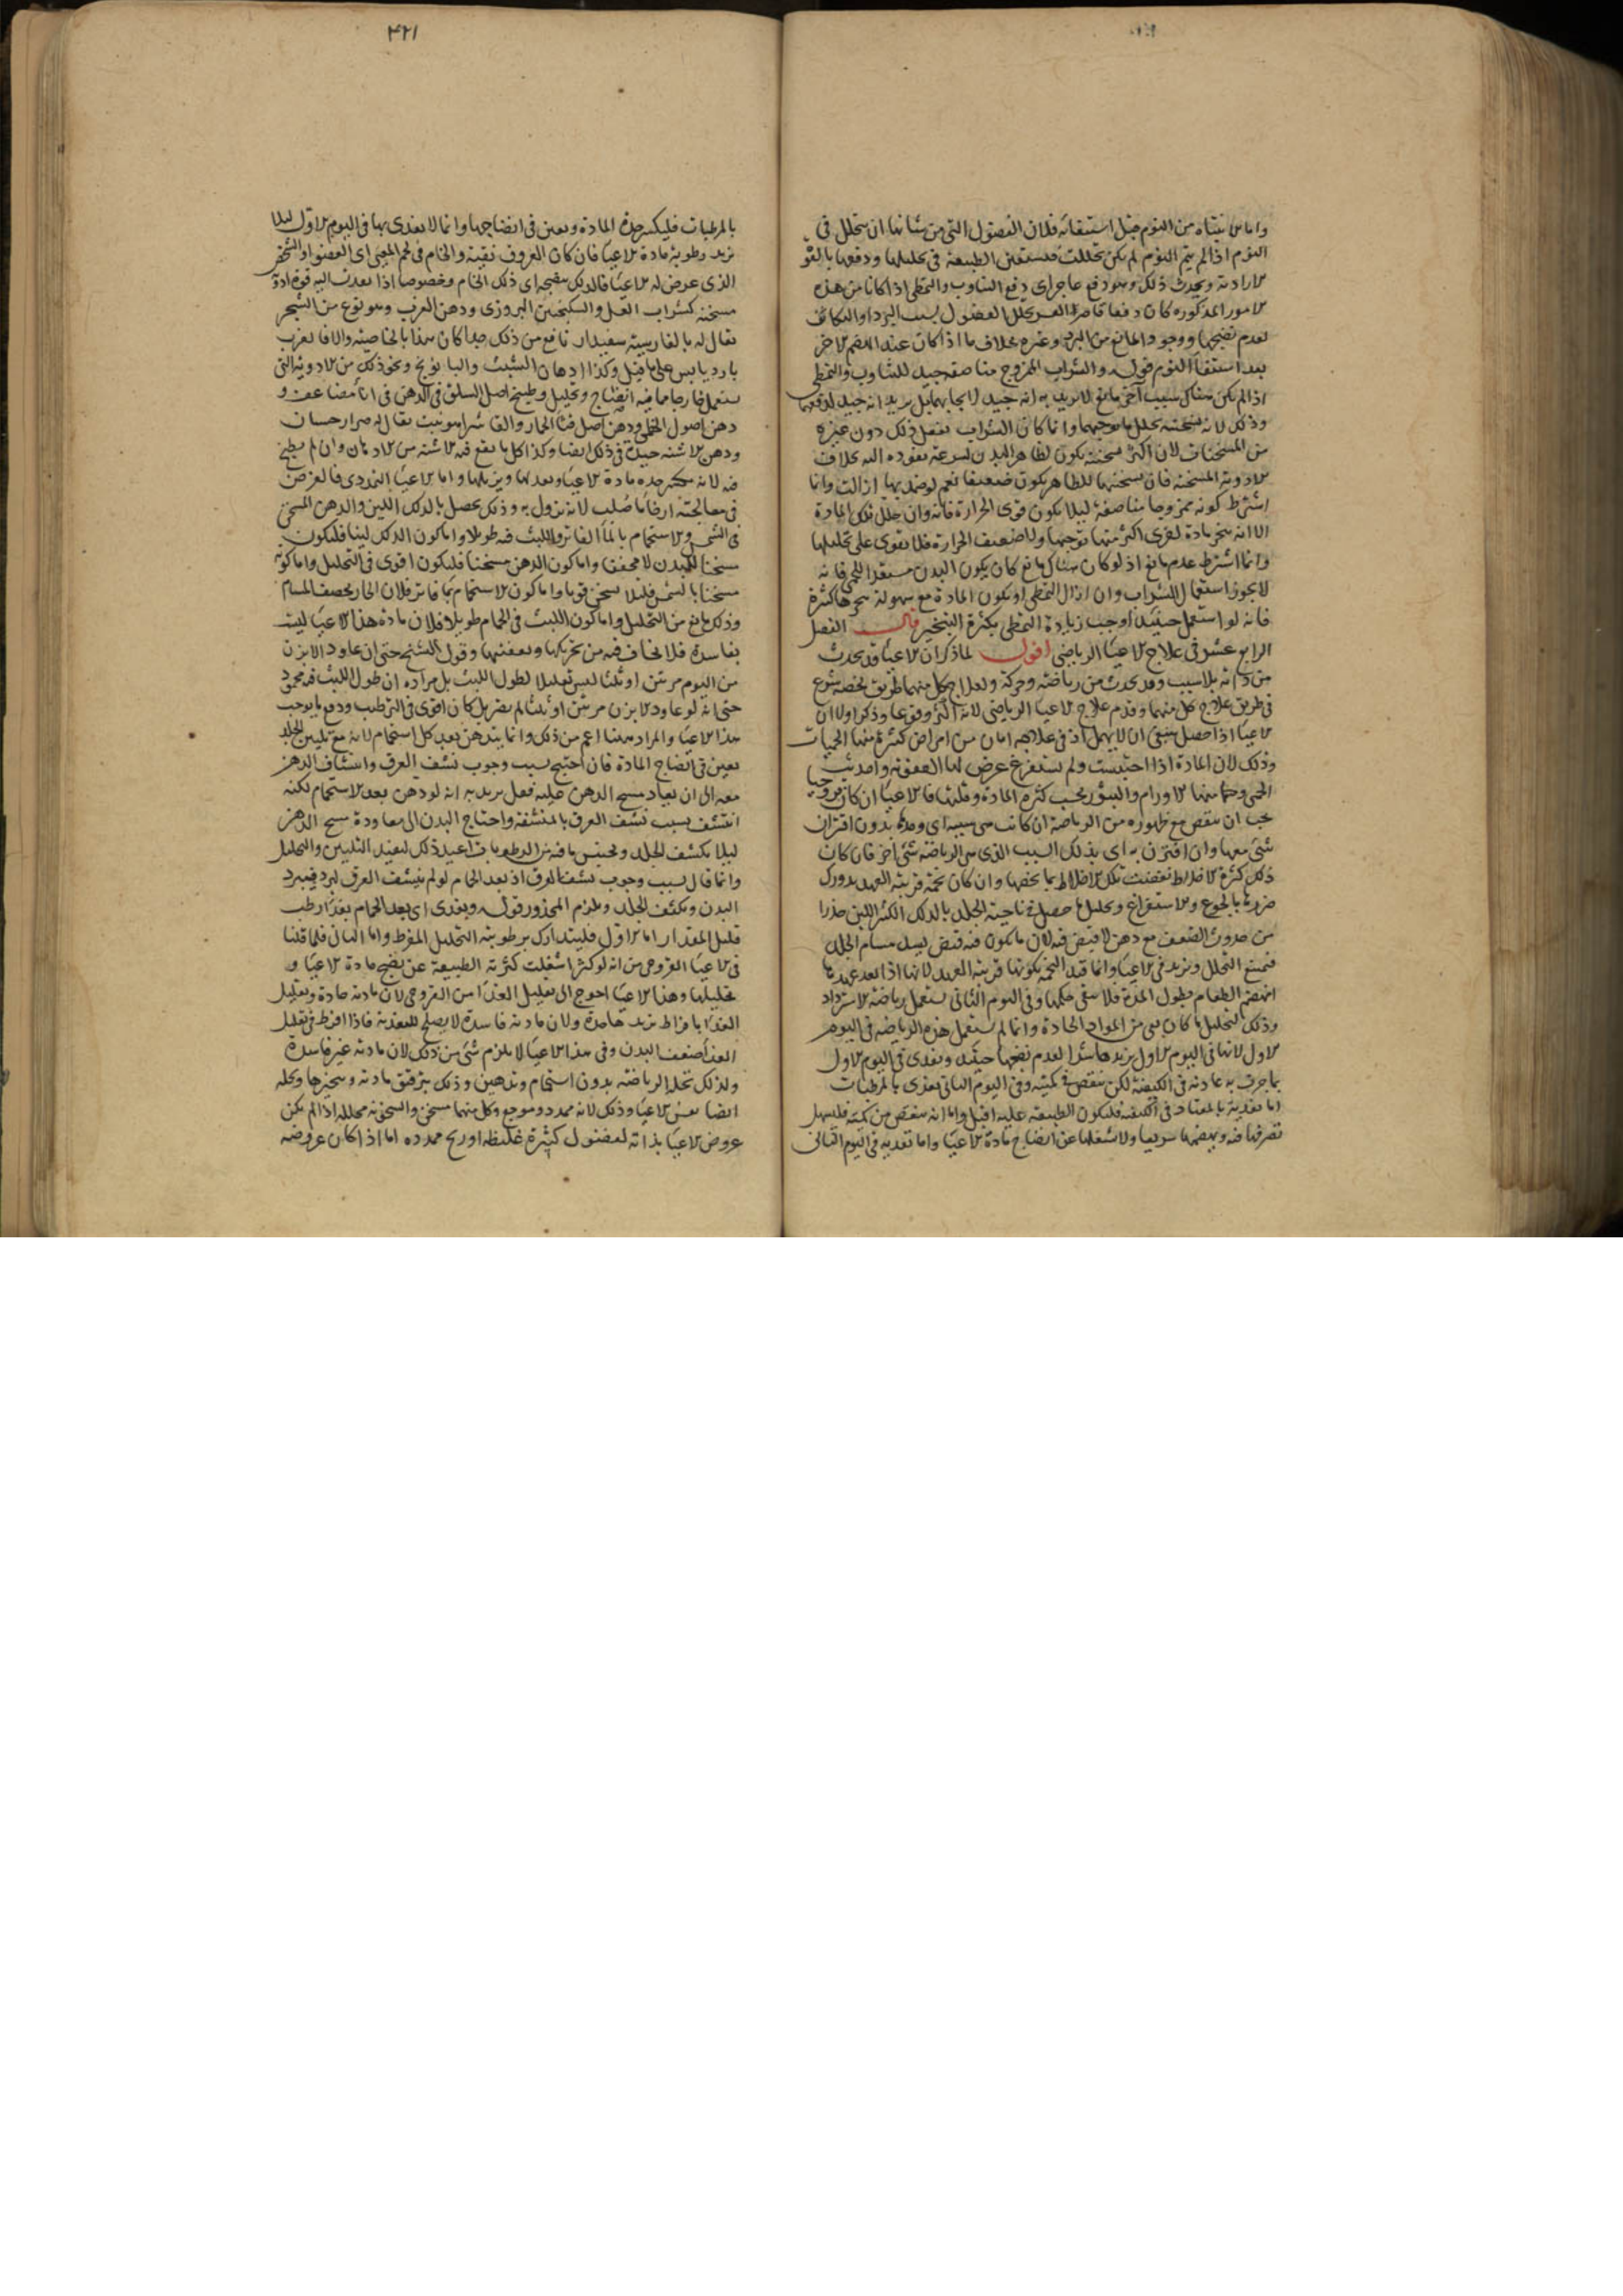 واما الانتباه من النوم قبل استيفائه فلان الفضول التي من شانها ان تتحلل في
النوم اذا لم يتم النوم لم يكن تحللت فتستعين الطبيعة في تحليلها ودفعها بالقوة
الارادية ويحدث ذلك وهو دفع عاجز اي دفع التثاوب والتمطي اذا كانا من هذه
الامور المذكورة كان دفعا قاصرا لعسر تحلل الفضول بسبب البرد او التكاثف
لعدم نضجها ووجود المانع من البرد وغيره بخلاف ما اذا كان عند الهضم الاخر
بعد استيفاء النوم قوله والشراب الممزوج مناصفة جيد للتثاوب والتمطي
اذا لم يكن هناك سبب آخر مانع لا نريد به انه جيد لايجابهما بل نريد انه جيد لدفعهما
وذلك لانه بتسخينه يحلل ما يوجبهما وانما كان الشراب يفعل ذلك دون غيره
من المسخنات لان اكثر تسخينه يكون لظاهر البدن لسرعة نفوذه اليه بخلاف
الادوية المسخنة فان تسخينها للظاهر يكون ضعيفا نعم لو ضمد بها ازالت وانما
اشترط كونه ممزوجا مناصفة ليلا يكون قوي الحرارة فانه وان حلل تلك المادة
الا انه يبخر مادة اخرى اكثر منها توجبها ولا ضعيف الحرارة فلا يقوى على تحليلها
وانما اشترط عدم مانع اذ لو كان هناك مانع كان يكون البدن مستعدا للحمى فانه
لا يجوز استعمال الشراب وان ازال التمطي او يكون المادة مع سهولة تبخرها كثيرة
فانه لو استعمل حينئذ اوجب زيادة التمطي بكثرة التبخير قال الفصل
الرابع عشر في علاج الاعياء الرياضي اقول لما ذكر ان الاعياء قد يحدث
من ذاته بلا سبب وقد يحدث من رياضة وحركة ولعلاج كل منهما طريق يخصه شرع
في طريق علاج كل منهما وقدم علاج الاعياء الرياضي لانه اكثر وقوعا وذكر اولا ان
الاعياء اذا حصل ينبغي ان لا يهمل اذ في علاجه امان من امراض كثيرة منها الحميات
وذلك لان المادة اذا احتبست ولم تستفرغ عرض لها العفونة واحدثت
الحمى وحدث منها الاورام والبثور بحسب كثرة المادة وقلتها فالاعياء ان كان قروحيا
يجب ان ينقص مع ظهوره من الرياضة ان كانت هي سببه اي وحدها بدون اقتران
شئ معها وان اقترن به اي بذلك السبب الذي هي الرياضة شئ آخر فان كان
ذلك كثرة الاخلاط نقصت تلك الاخلاط بما يخصها وان كان تخمة قريبة العهد تدورك
ضررها بالجوع والاستفراغ وتحليل ما حصل في ناحية الجلد بالدلك الكثير اللين حذرا
من حدوث الضعف مع دهن لا قبض فيه لان ما يكون فيه قبض يسد مسام الجلد
فيمنع التحلل ويزيد في الاعياء وانما قيد التخمة بكونها قريبة العهد لانها اذا بعد عهدها
انهضم الطعام بطول المدة فلا يبقى حكمها وفي اليوم الثاني يستعمل رياضة الاسترداد
وذلك لتحليل ما كان بقي من المواد الحادة وانما لم يستعمل هذه الرياضة في اليوم
الاول لانها في اليوم الاول يزيدها شرا لعدم نضجها حينئذ ويغذى في اليوم الاول
بما جرت به عادته في الكيفية لكن ينقص في كميته وفي اليوم الثاني يغذى بالمرطبات
اما تغذيته بالمعتاد في الكيفية فليكون الطبيعة عليه اقبل واما انه ينقص من كميته فليسهل
تصرفها فيه وبهضمها سريعا ولا يشغلها عن انضاج مادة الاعياء واما تغذيه في اليوم الثاني
۴۲۱
بالمرطبات فليكسر حدة المادة ويعين في انضاجها وانما لا يغذى بها في اليوم الاول ليلا
تزيد رطوبة مادة الاعياء فان كان العروق نقية والخام في لحم المعيى اي العضو او الشخص
الذي عرض له الاعياء فالدلك منضجه اي ذلك الخام وخصوصا اذا نفذت اليه قوة ادوية
مسخنة كشراب العسل والسكنجبين البزوري ودهن الغرب وهو نوع من الشجر
يقال له بالفارسية سفيدار نافع من ذلك جدا كان هذا بالخاصية والا فالغرب
بارد يابس على ما قيل وكذا ادهان الشبث والبابونج ونحو ذلك من الادوية التي
يستعمل خارجا مما فيه انضاج وتحليل وطبيخ اصل السلق في الدهن في اناء مضاعف و
دهن اصول الخطمي ودهن اصل قثاء الحمار والفاشرا هو نبت يقال له هزار حسان
ودهن الاشنة جيد في ذلك ايضا وكذا كل ما يقع فيه الاشنة من الادهان وان لم يطبخ
فيه لانه يكسر حدة مادة الاعياء ويعدلها ويزيلها واما الاعياء التمددي فالغرض
في معالجته ارخاء ما صلب لانه يزول به وذلك يحصل بالدلك اللين والدهن المسخن
في الشمس والاستحمام بالماء الفاتر واللبث فيه طويلا واما كون الدلك لينا فليكون
مسخنا للبدن لا مجففا واما كون الدهن مسخنا فليكون اقوى في التحليل واما كونه
مسخنا بالشمس فليلا يسخن قويا واما كون الاستحمام بماء فاتر فلان الحار يخصف المسام
وذلك مانع من التحليل واما كون اللبث في الحمام طويلا فلان مادة هذا الاعياء ليست
بفاسدة فلا يخاف فيه من تحريكها وتعفينها وقول الشيخ حتى ان عاود الابزن
من اليوم مرتين او ثلثا ليس تعليلا لطول اللبث بل مراده ان طول اللبث فيه محمود
حتى انه لو عاود الابزن مرتين او ثلثا لم يضر بل كان اقوى في الترطيب ودفع ما يوجب
هذا الاعياء والمراد ههنا اعم من ذلك وانما يتدهن بعد كل استحمام لانه مع تليين الجلد
يعين في انضاج المادة فان احتيج بسبب وجوب نشف العرق وانتشاف الدهن
معه الى ان يعاد مسح الدهن عليه فعل يريد به انه لو دهن بعد الاستحمام لكنه
انتشف بسبب نشف العرق بالمنشفة واحتاج البدن الى معاودة مسح الدهن
ليلا يكشف الجلد ويحتبس ما فيه من الرطوبات اعيد ذلك ليفيد التليين والتحليل
وانما قال بسبب وجوب نشف العرق اذ بعد الحمام لو لم ينشف العرق لبرد فيبرد
البدن ويكثف الجلد ويلزم المحذور قوله ويغذى اي بعد الحمام بغذاء رطب
قليل المقدار اما الاول فليتدارك برطوبته التحليل المفرط واما الثاني فلما قلنا
في الاعياء القروحي من انه لو كثر اشغلت كثرته الطبيعة عن نضج مادة الاعياء و
تحليلها وهذا الاعياء احوج الى تقليل الغذاء من القروحي لان مادته حادة وتقليل
الغذاء بافراط يزيد حدة ولان مادته فاسدة لا يصلح للتغذية فاذا افرط في تقليل
الغذاء ضعف البدن وفي هذا الاعياء لا يلزم شئ من ذلك لان مادته غير فاسدة
ولذلك تحله الرياضة بدون استحمام وتدهين وذلك بترقيق مادته وتبخيرها وتحله
ايضا نفس الاعياء وذلك لانه ممدد وموجع وكل منهما مسخن والسخونة محللة اذا لم يكن
عروض الاعياء بذاته لفضول كثيرة غليظة او ريح ممددة اما اذا كان عروضه